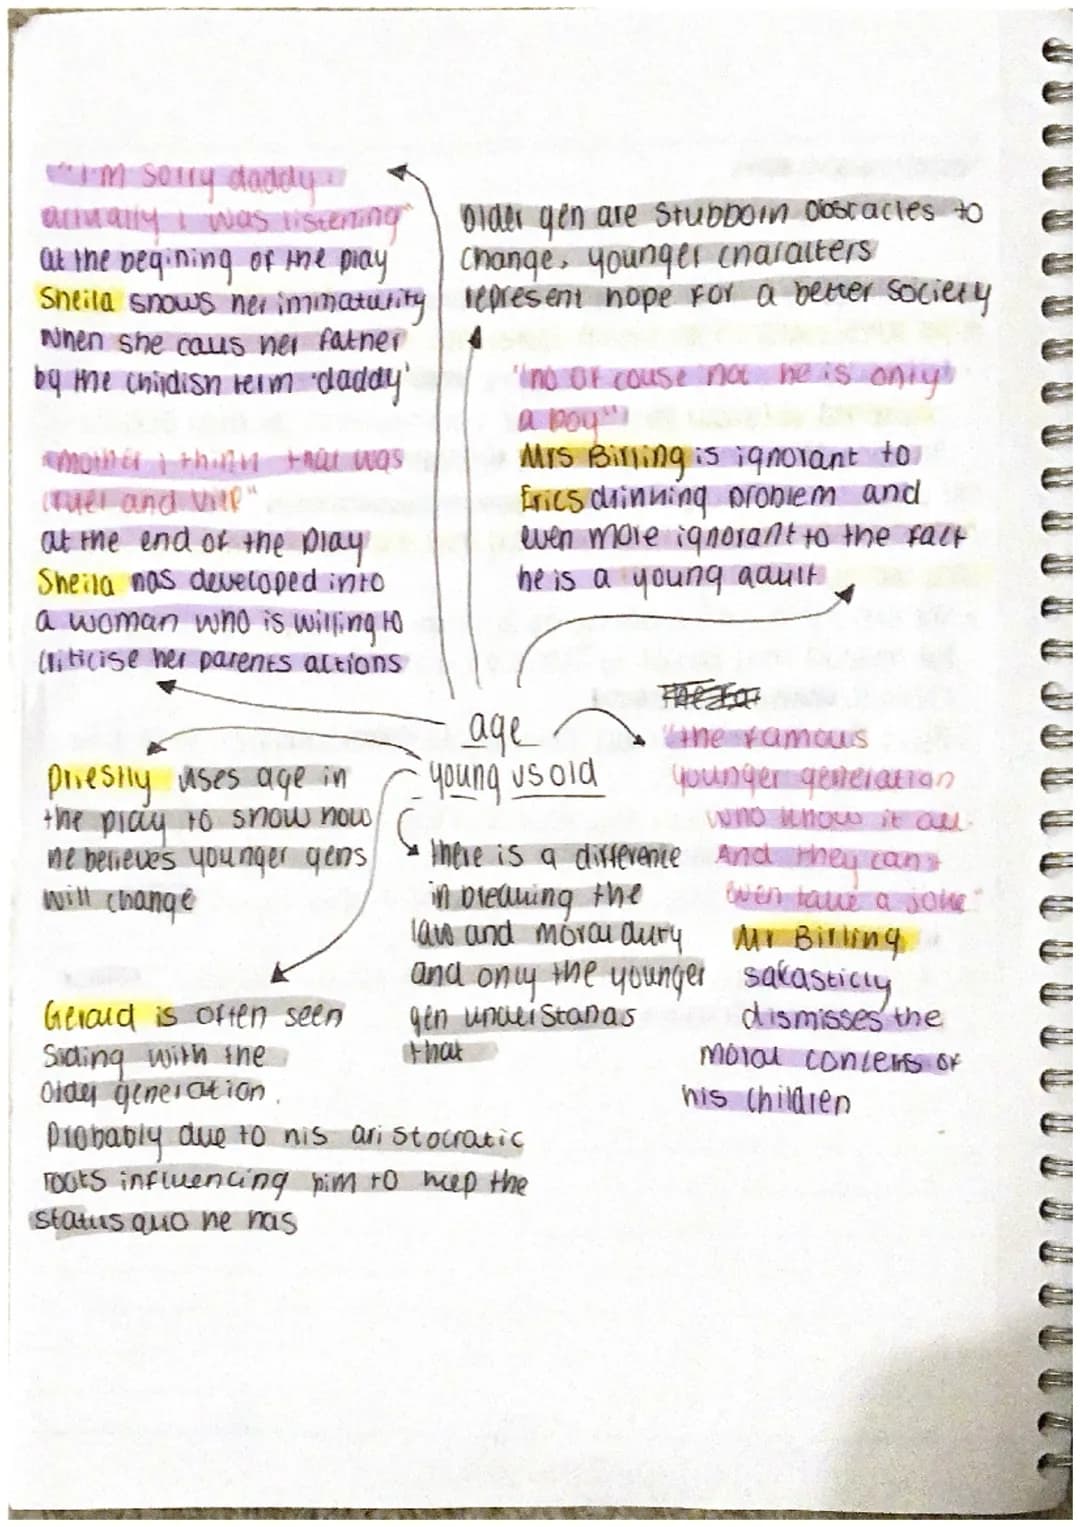 "I'm sorry daddy.
actually I was listening"
at the begining of the play
Sheila shows her immaturity
when she calls her father
by the childish term 'daddy'
older gen are stubborn obstacles to
change. younger characters
represent hope for a better society
"no of couse not he is only
a boy"
Mrs Birling is ignorant to
Erics drinking problem and
even more ignorant to the fact
he is a young adult
"mother i think that was
cruel and vile"
at the end of the play
Sheila has developed into
a woman who is willing to
criticise her parents actions
age
young vs old
Priestly uses age in
the play to show how
he believes younger gens
will change
there is a difference
in breaking the
law and moral duty
and only the younger
gen understands
that
"the famous
younger generation
who know it all.
And they can't
even take a joke"
Mr Birling
sakasticly
dismisses the
moral concerns of
his children
Gerald is often seen
siding with the
older generation.
Probably due to his aristocratic
roots influencing him to keep the
status quo he has